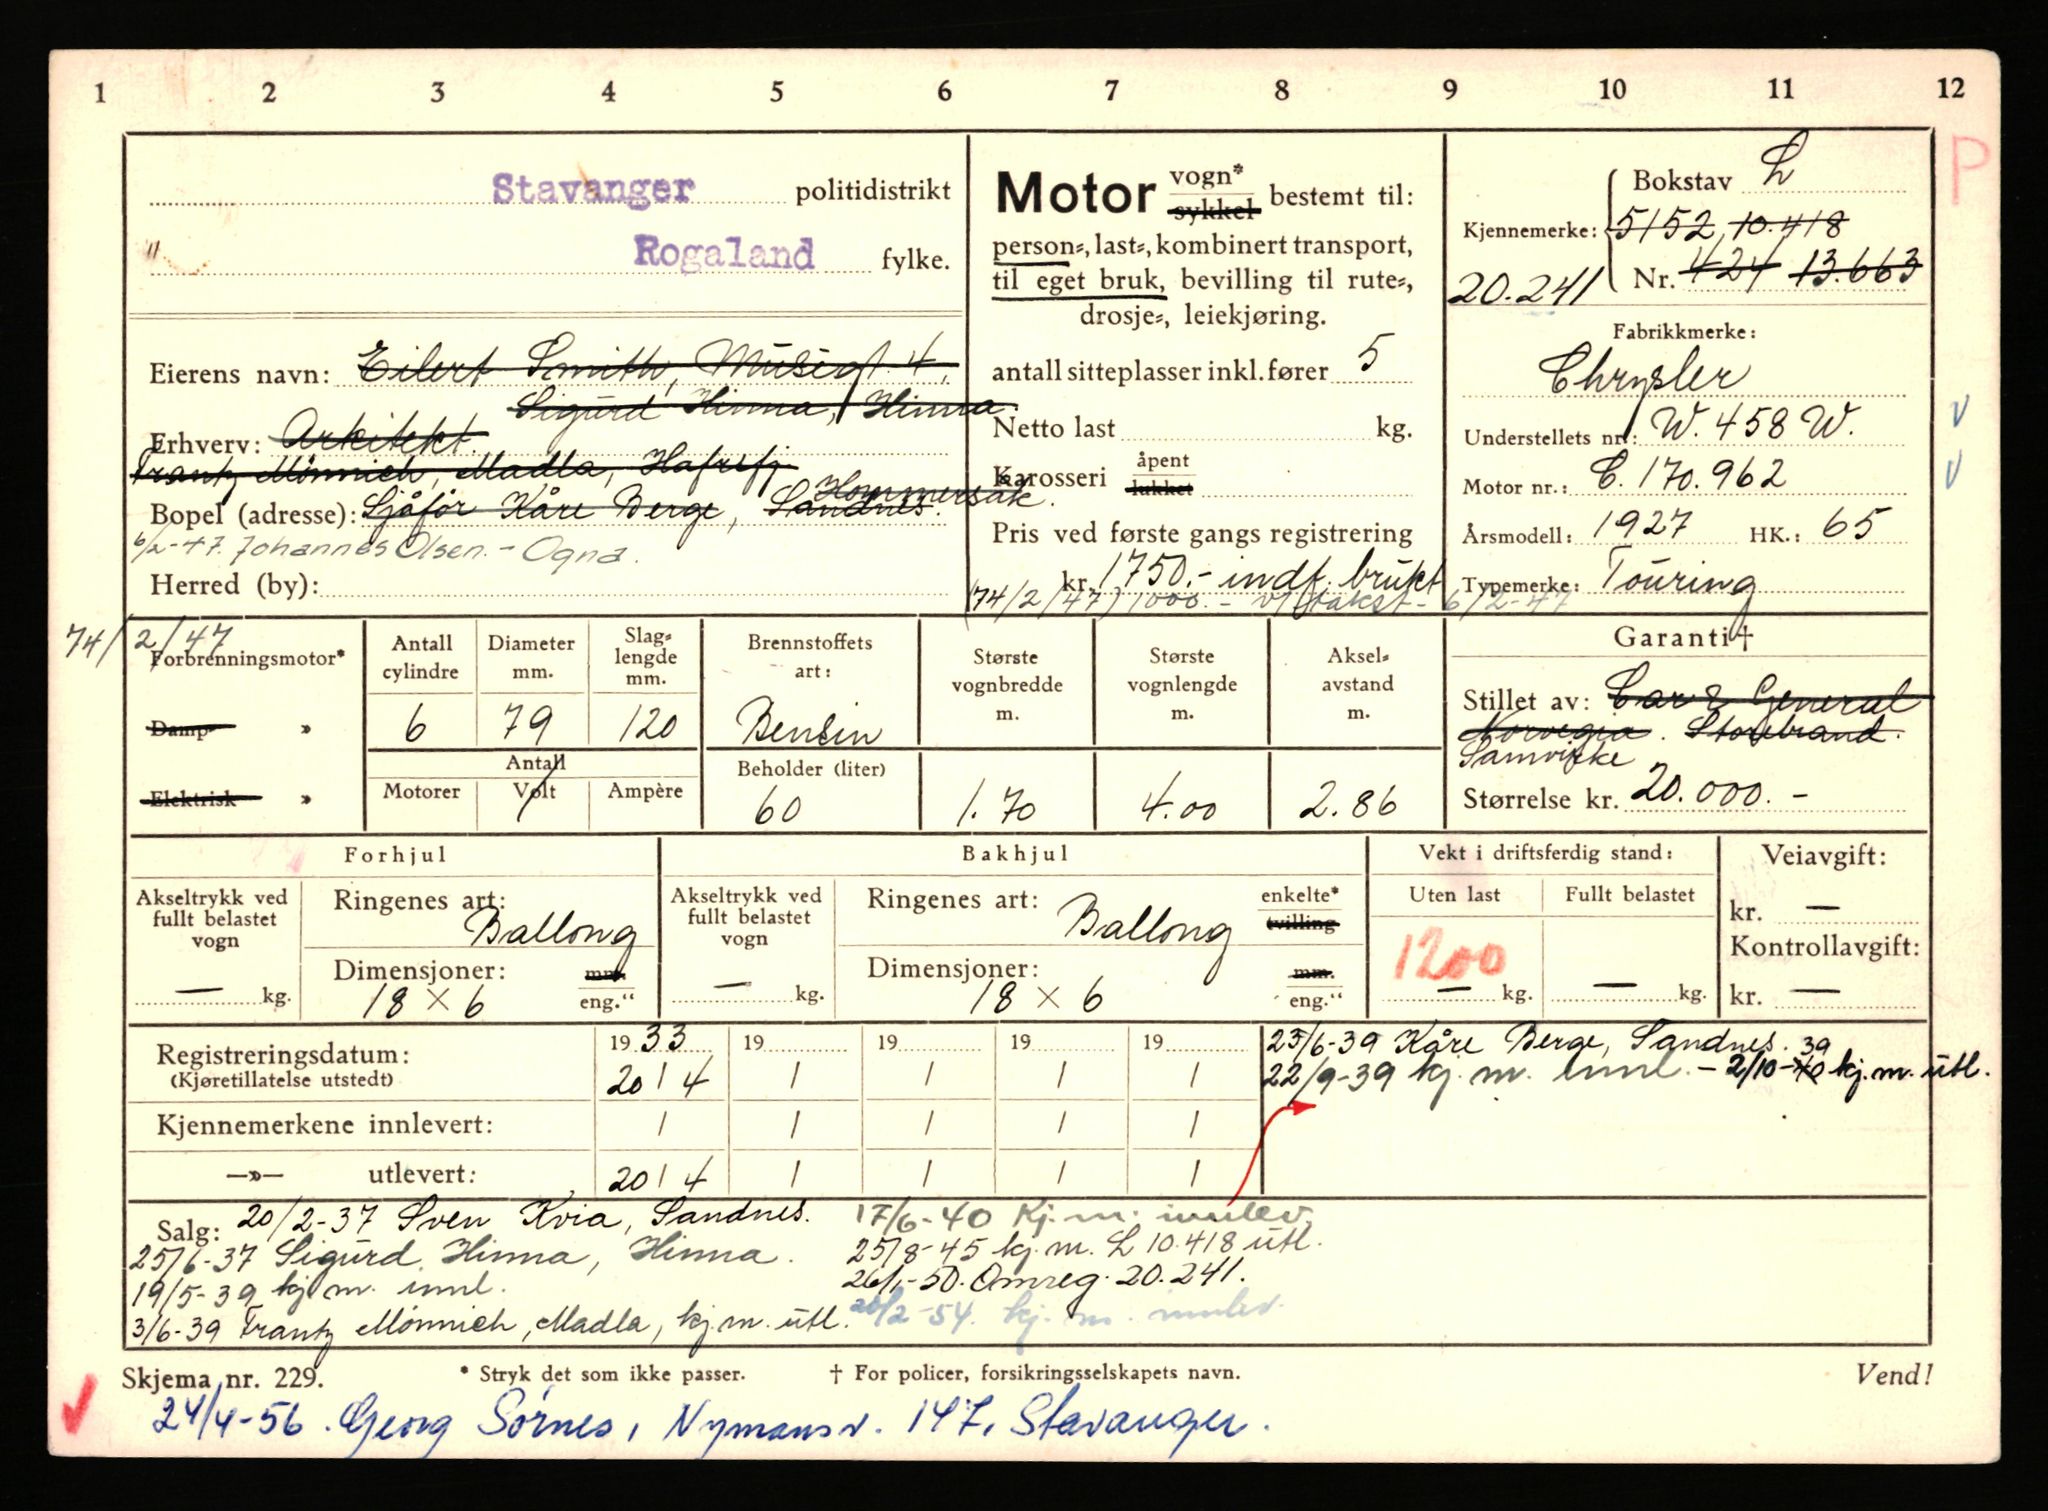 1 2 3 4 5 6 7 8 9 10 11 12
Stavanger politidistrikt
" Rogaland fylke.
Eierens navn: Eilert Smith, Musegt 4,
Sigurd Hinna, Hinna.
Erhverv: Arkitekt.
Frantz Mönnich, Madla, Hafrsfj
Hommersåk.
Bopel (adresse): Sjåför Kåre Berge, Sandnes.
6/2-47. Johannes Olsen. - Ogna.
Herred (by):
Motor vogn* sykkel bestemt til:
person-, last-, kombinert transport,
til eget bruk, bevilling til rute-,
drosje-, leiekjøring.
antall sitteplasser inkl. fører 5
Netto last kg.
Karosseri åpent lukket
Pris ved første gangs registrering
kr. 1750.- indf. brukt
(74/2/47) 1000.- v/takst - 6/2-47
P
Bokstav L
Kjennemerke: 5152 10.418
20.241 Nr. 424 13.663
Fabrikkmerke:
Chrysler
Understellets nr.: W. 458 W. v
Motor nr.: C. 170.962 v
Årsmodell: 1927 HK.: 65
Typemerke: Touring
74/2/47
Forbrenningsmotor*
Damp- »
Elektrisk »
Antall cylindre 6
Diameter mm. 79
Slag-lengde mm. 120
Antall
Motorer Volt Ampère
Brennstoffets art: Bensin
Beholder (liter) 60
Største vognbredde m. 1.70
Største vognlengde m. 4.00
Aksel-avstand m. 2.86
Garanti †
Stillet av: Car & General
Norvegia. Storebrand.
Samvirke
Størrelse kr. 20.000.-
Forhjul
Akseltrykk ved fullt belastet vogn — kg.
Ringenes art: Ballong
Dimensjoner: mm. eng."
18 × 6
Bakhjul
Akseltrykk ved fullt belastet vogn — kg.
Ringenes art: Ballong enkelte* tvilling
Dimensjoner: mm. eng."
18 × 6
Vekt i driftsferdig stand:
Uten last Fullt belastet
1200
— kg. — kg.
Veiavgift:
kr. —
Kontrollavgift:
kr. —
Registreringsdatum: 1933 19 19 19 19
(Kjøretillatelse utstedt) 20 / 4 / / / /
Kjennemerkene innlevert: / / / / /
—»— utlevert: 20 / 4 / / / /
25/6-39 Kåre Berge, Sandnes. 39
22/9-39 kj. m. innl. - 2/10-40 kj. m. utl.
Salg: 20/2-37 Sven Kvia, Sandnes.
25/6-37 Sigurd Hinna, Hinna.
19/5-39 kj. m. innl.
3/6-39 Frantz Mönnich, Madla, kj. m. utl.
17/6-40 Kj. m. innlev.
25/8-45 kj. m. L 10.418 utl.
26/1-50. Omreg. 20.241.
20/2-54. kj. m. innlev.
Skjema nr. 229. * Stryk det som ikke passer. † For policer, forsikringsselskapets navn. Vend!
24/4-56. Georg Sörnes, Nymansv. 147, Stavanger.